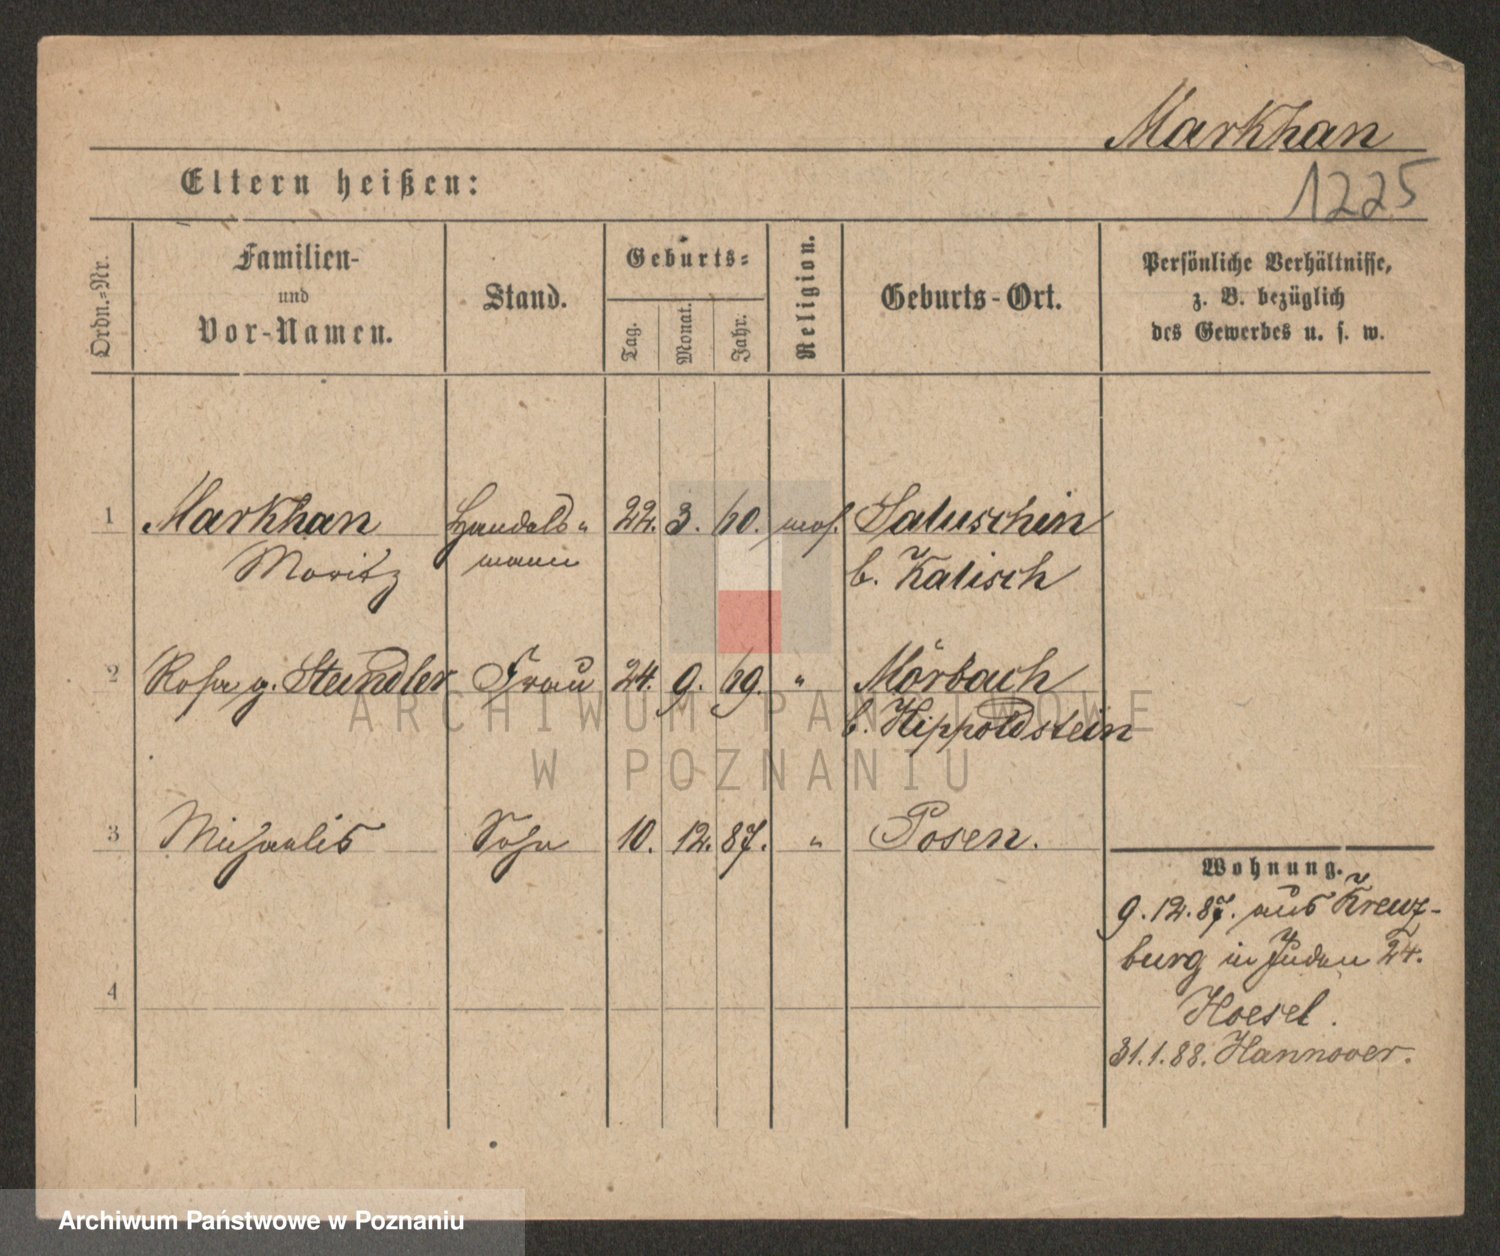 Markhan
1225
Eltern heißen:
Ordn.=Nr.
Familien-
und
Vor-Namen.
Stand.
Geburts=
Tag.
Monat.
Jahr.
Religion.
Geburts-Ort.
Persönliche Verhältnisse,
z. B. bezüglich
des Gewerbes u. s. w.
1 Markhan Handels= 22. 3. 60. mos. Saluschin
Moritz mann b. Kalisch
2 Rosa g. Steindler Frau 24. 9. 69. " Mörbach
b. Hippoldstein
3 Michaelis Sohn 10. 12. 87. " Posen.
Wohnung.
9.12.87. aus Kreuz-
burg in Juden 24.
4
Hoesel.
31.1.88. Hannover.
ARCHIWUM PAŃSTWOWE
W POZNANIU
Archiwum Państwowe w Poznaniu